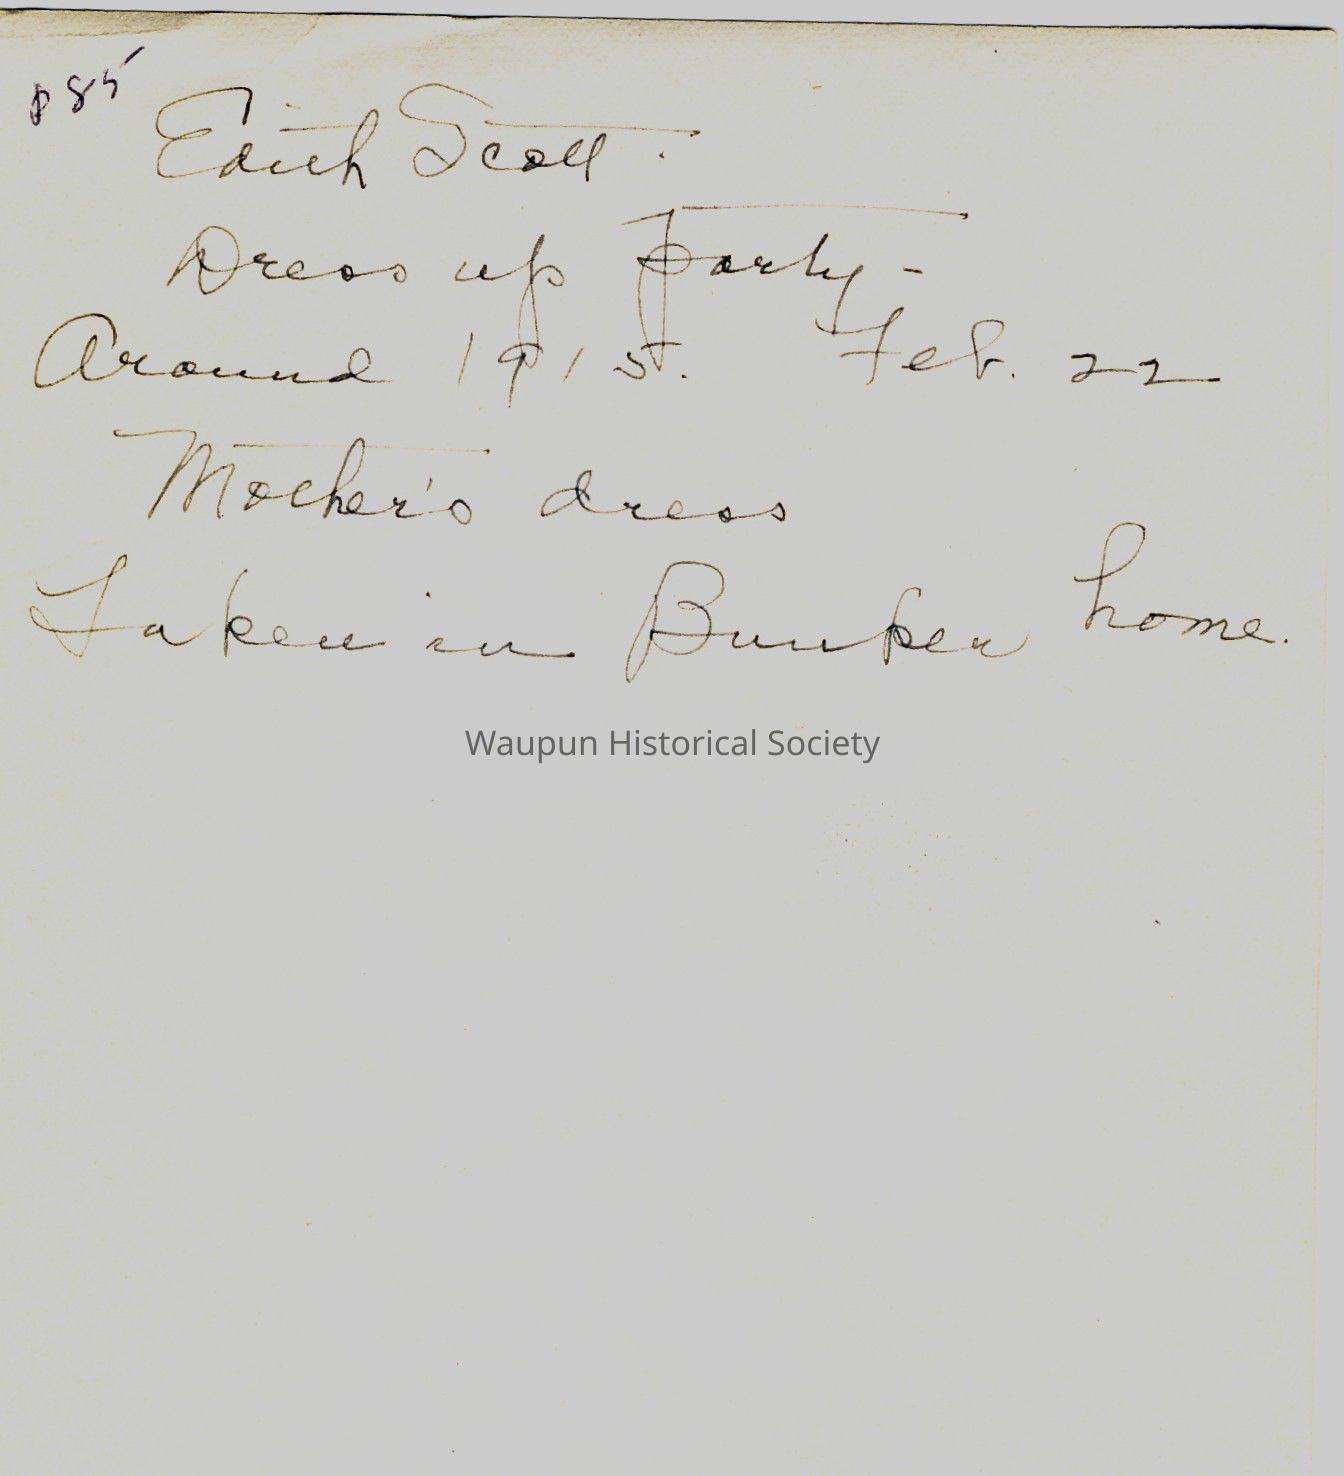 p 85
Edith Scott.
Dress up party -
Around 1915. Feb. 22
Mother's dress
Taken in Bunker home.
Waupun Historical Society